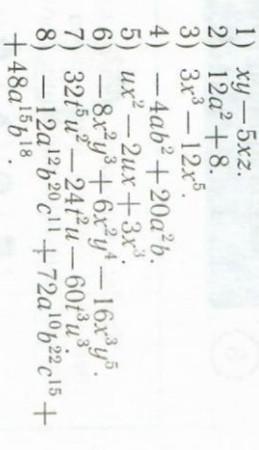 1) xy − 5xz.
2) 12a² + 8.
3) 3x³ − 12x⁵.
4) −4ab² + 20a²b.
5) ux² − 2ux + 3x³.
6) −8x²y³ + 6x²y⁴ − 16x³y⁵.
7) 32t⁵u² − 24t²u − 60t³u³.
8) −12a¹²b²⁰c¹¹ + 72a¹⁰b²²c¹⁵ +
+ 48a¹⁵b¹⁸.